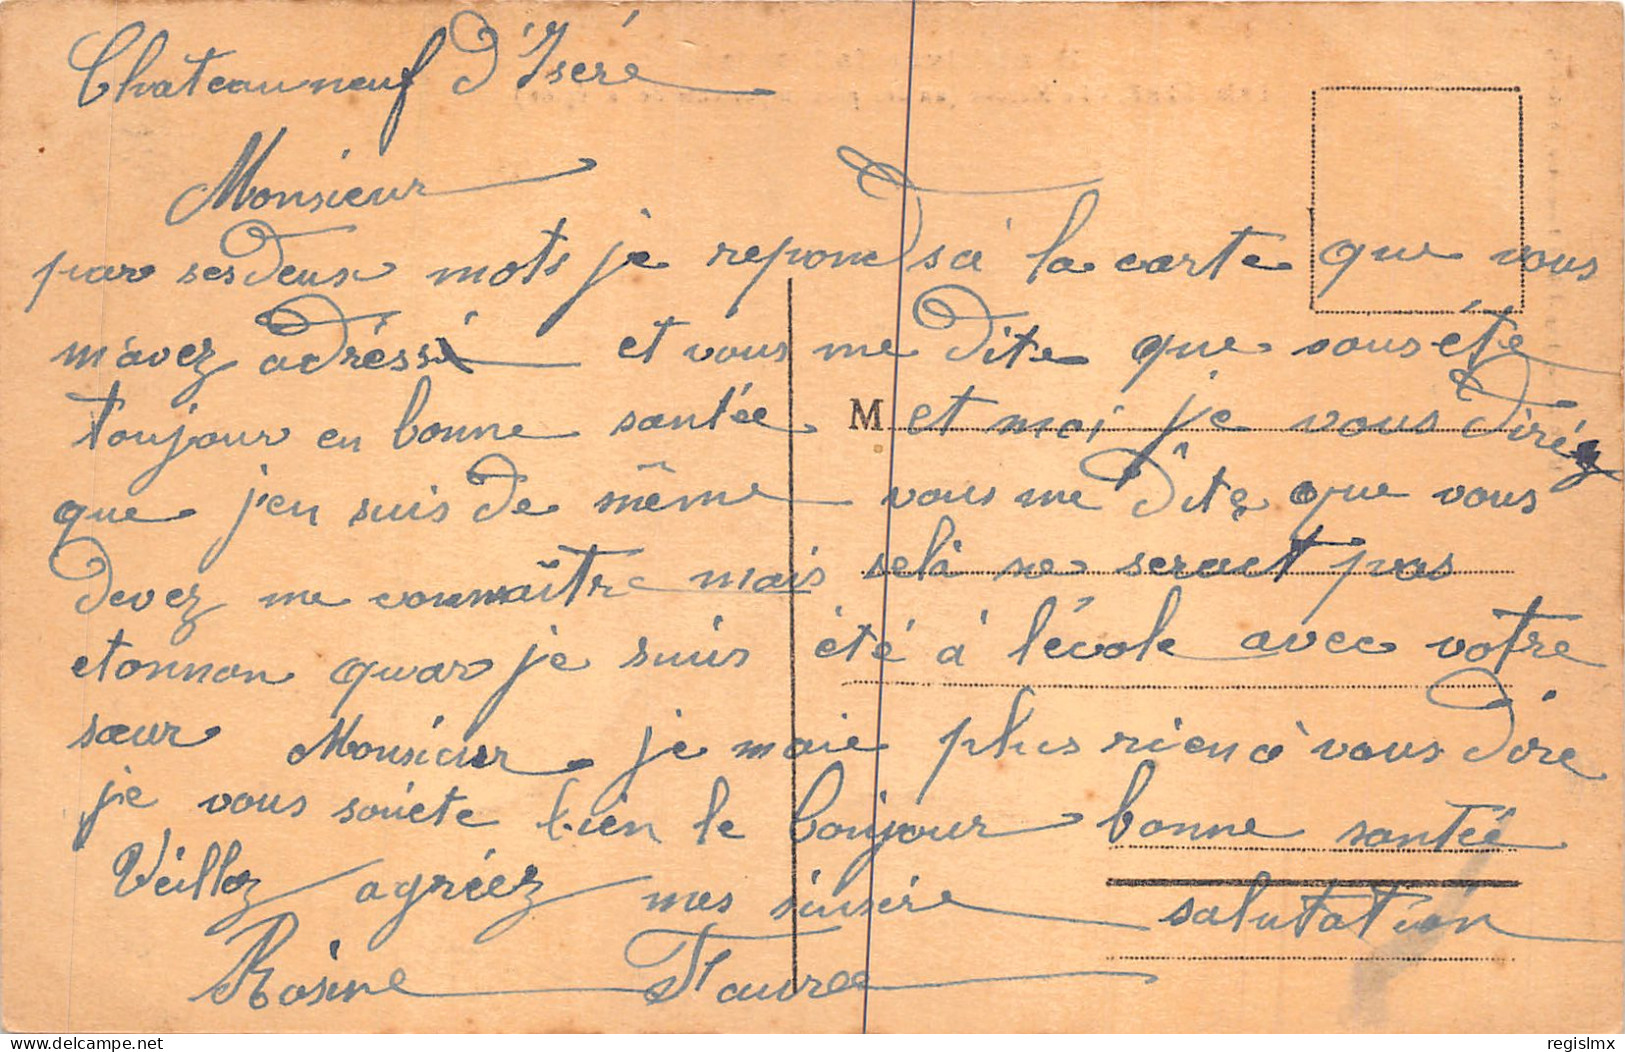 Chateauneuf d'Iseré
Monsieur
par ses deux mots je reponds à la carte que vous
m'avez adréssé et vous me dite que vous ête
toujour en bonne santée M et moi je vous diré
que j'en suis de même vous me dite que vous
devez me connaître mais selà ne seract pas
etonnan quar je suis été à l'école avec votre
sœur Monsieur je maie plus rien à vous dire
je vous souète bien le bonjour bonne santée
Veillez agréez mes sinsére salutation
Rosine Faure
regislmx
www.delcampe.net